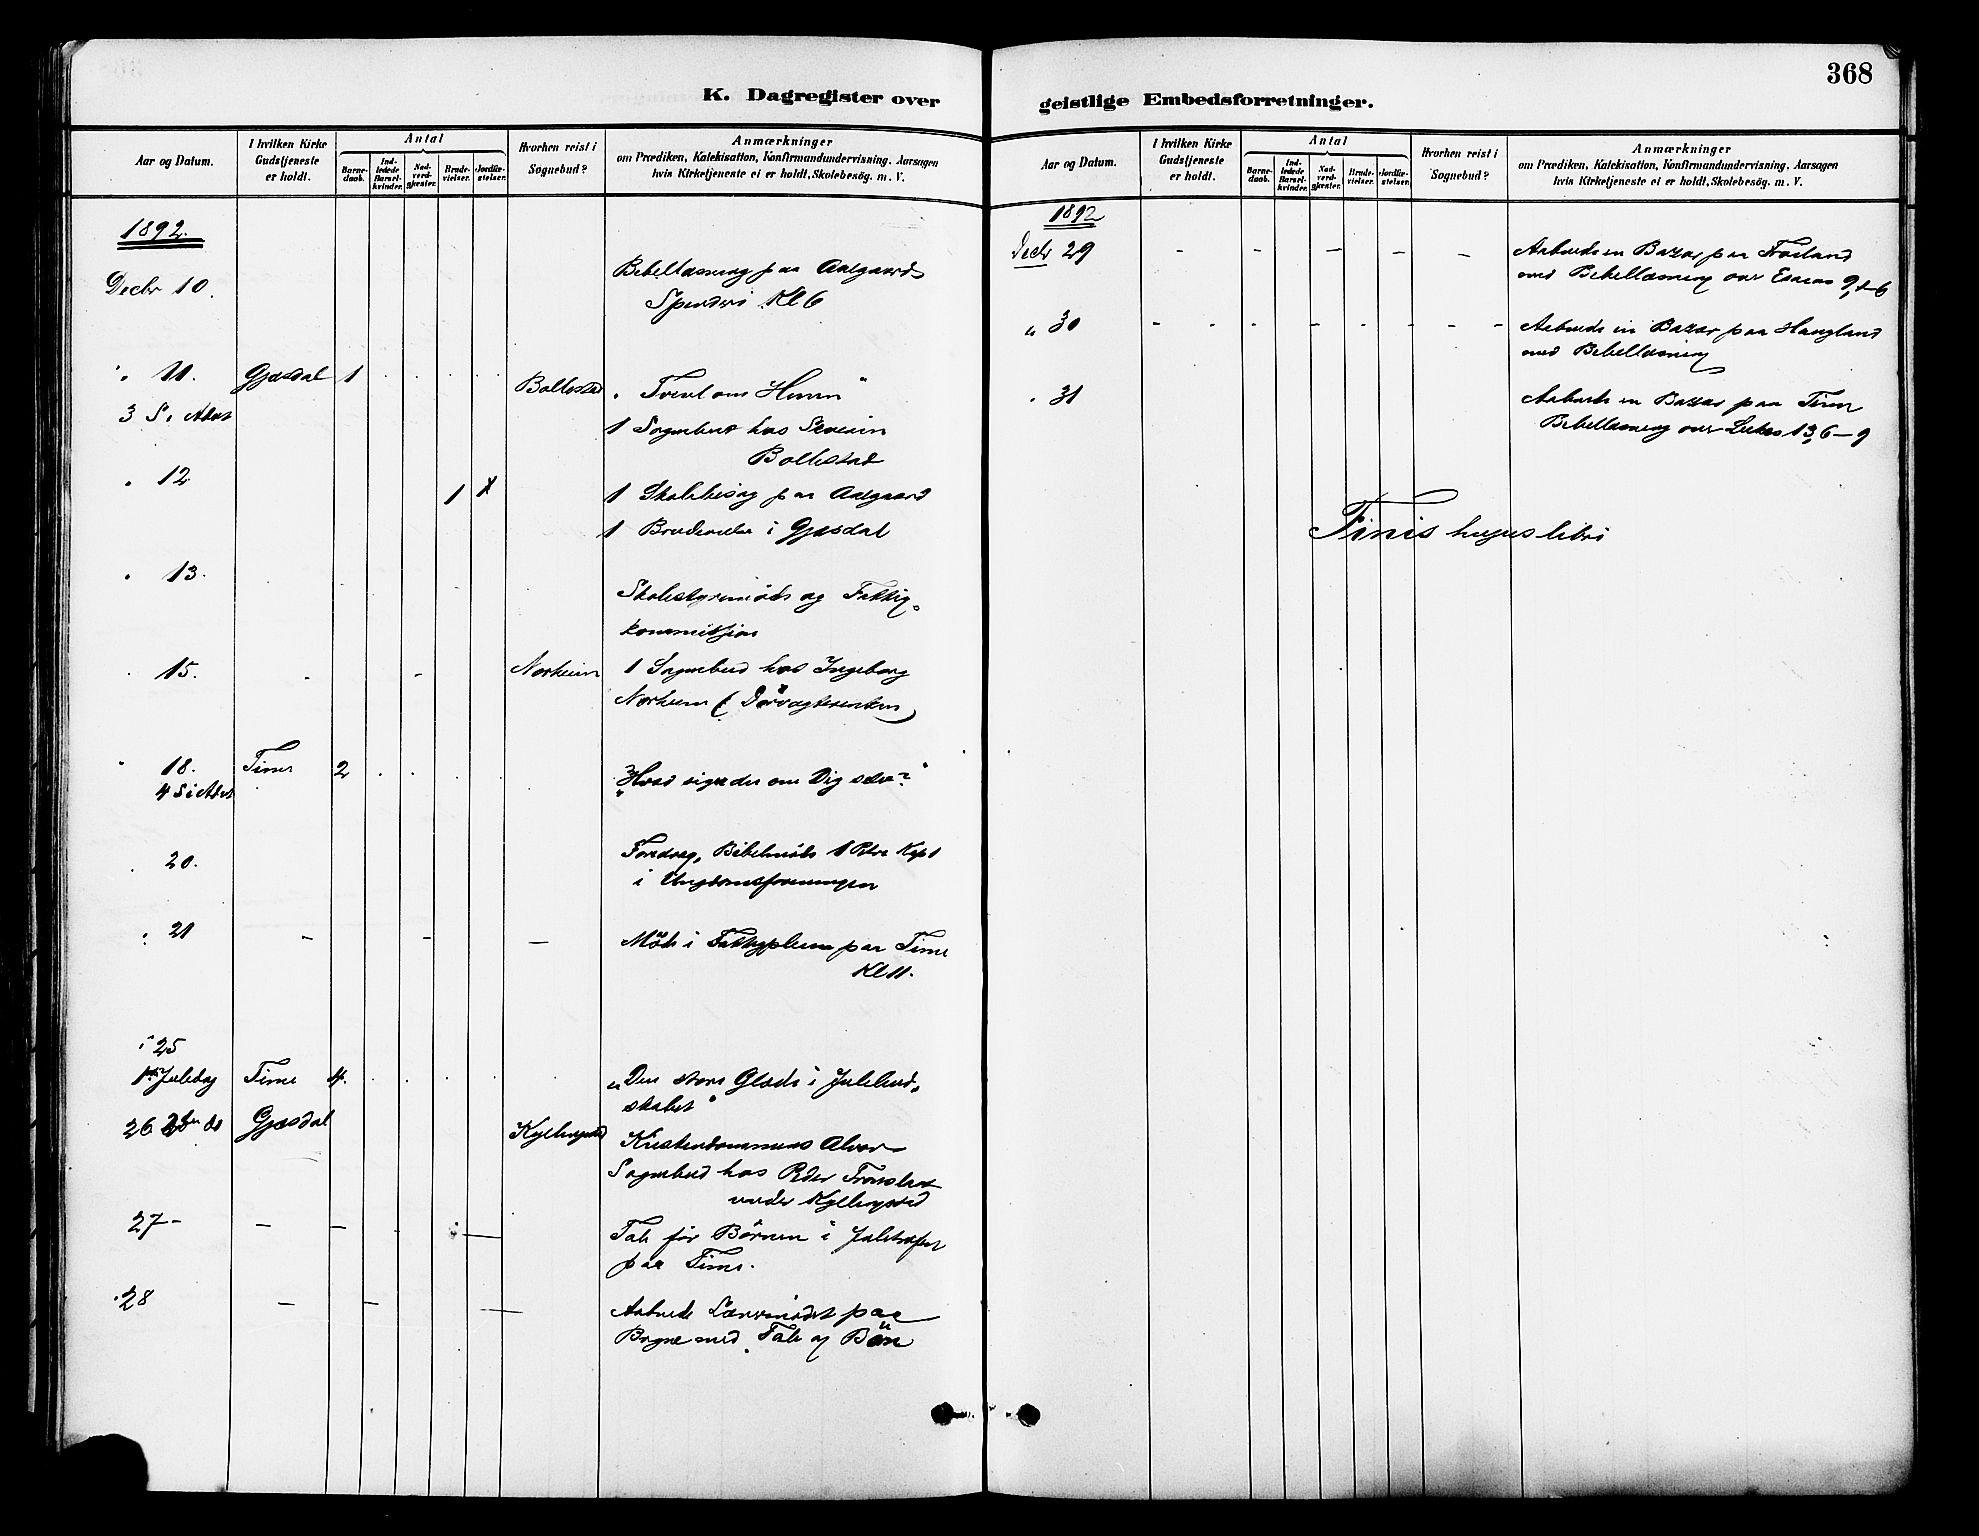 368
K. Dagregister over
Aar og Datum.
I hvilken Kirke Gudstjeneste er holdt.
Antal
Barnedaab.
Indledede Barselkvinder.
Nadverdgjester.
Brudevielser.
Jordfæstelser.
Hvorhen reist i Sognebud?
Anmærkninger
om Prædiken, Katekisation, Konfirmandundervisning, Aarsagen
hvis Kirketjeneste ei er holdt, Skolebesøg. m. V.
1892.
Decbr 10. Bibellæsning paa Aalgaards
Spinderi Kl 6
" 11. Gjæsdal 1 Bollestad " Tvivl om Herren"
3 S. i Advt 1 Sognebud hos Severin
Bollestad
" 12 1 1 Skolebesøg paa Aalgaard
1 Brudevielse i Gjæsdal
" 13. Skolestyremøde og Fattig-
kommission
" 15. Norheim 1 Sognebud hos Ingeborg
Norheim
" 18. Time 2 "Hvad siger du om Dig selv?"
4 S i Advt
" 20. Foredrag, Bibelmøde 1 Petri Kap 1
i Ungdomsforeningen
" 21 Møde i paa Time
Kl 11.
" 25
1ste Juledag Time 4. "Den store Glæde i Julebud-
skabet"
26 2den do Gjæsdal Kyllingstad Kristendommens Alvor
Sognebud hos Peder
under Kyllingstad
27 - Tale for Børnen i Juletræfest
paa Time.
" 28 Aabnede Lærermødet paa
Bryne med Tale og Bøn
geistlige Embedsforretninger.
Aar og Datum.
I hvilken Kirke Gudstjeneste er holdt.
Antal
Barnedaab.
Indledede Barselkvinder.
Nadverdgjester.
Brudevielser.
Jordfæstelser.
Hvorhen reist i Sognebud?
Anmærkninger
om Prædiken, Katekisation, Konfirmandundervisning, Aarsagen
hvis Kirketjeneste ei er holdt, Skolebesøg. m. V.
1892
Decbr 29 Aabnede en Bazar paa Frøsland
med Bibellæsning over Esaias 9, 2-6
" 30 Aabnede en Bazar paa Haugland
med Bibellæsning
" 31 Aabnede en Bazar paa Time
Bibellæsning over Lukas 13, 6-9
Finis hujus libri